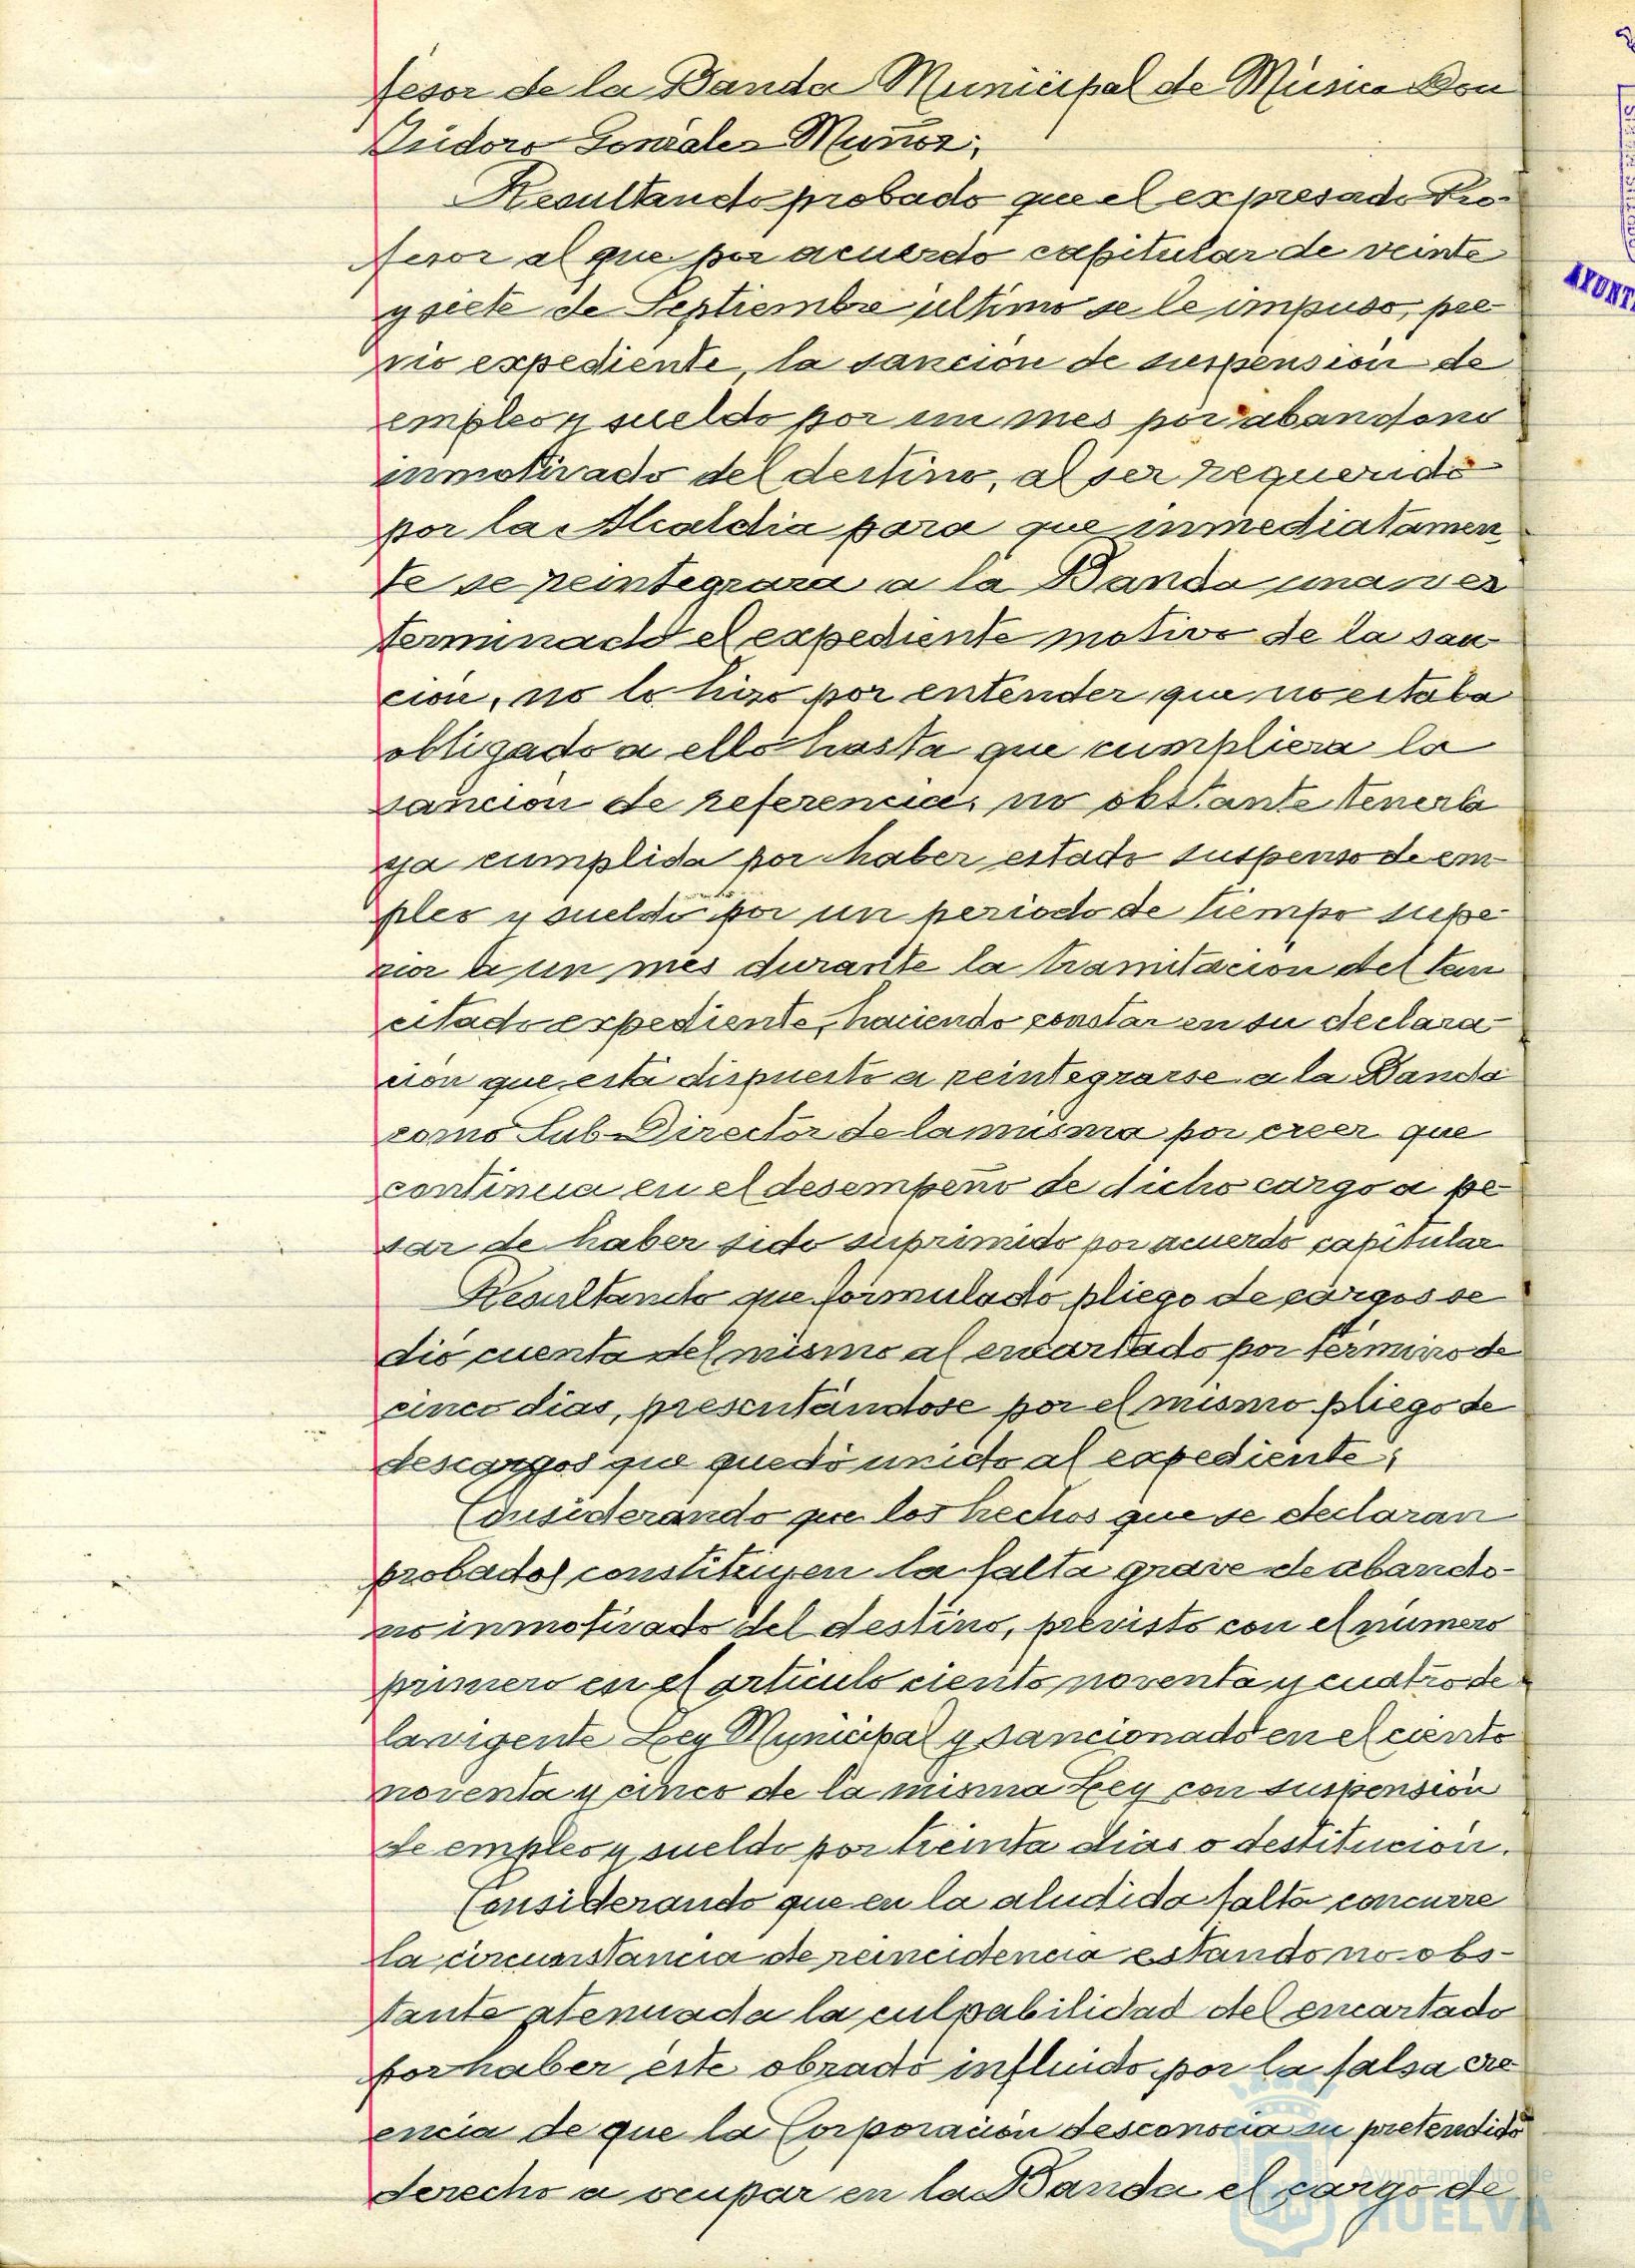 fesor de la Banda Municipal de Música Don
Isidoro Gonzalez Muñoz;
Resultando probado que el expresado Pro-
fesor al que por acuerdo capitular de veinte
y siete de Septiembre último se le impuso, pre-
vio expediente, la sanción de suspensión de
empleo y sueldo por un mes por abandono
inmotivado del destino, al ser requerido
por la Alcaldia para que inmediatamen
te se reintegrara a la Banda una vez
terminado el expediente motivo de la san
cion, no lo hizo por entender que no estaba
obligado a ello hasta que cumpliera la
sanción de referencia, no obstante tenerla
ya cumplida por haber estado suspenso de em-
pleo y sueldo por un periodo de tiempo supe-
rior a un mes durante la tramitación del tan
citado expediente, haciendo constar en su declara-
ción que está dispuesto a reintegrarse a la Banda
como Sub-Director de la misma por creer que
continua en el desempeño de dicho cargo a pe-
sar de haber sido suprimido por acuerdo capitular
Resultando que formulado pliego de cargos se
dió cuenta del mismo al encartado por término de
cinco dias, presentándose por el mismo pliego de
descargos que quedó unido al expediente;
Considerando que los hechos que se declaran
probados constituyen la falta grave de abando-
no inmotivado del destino, previsto con el número
primero en el artículo ciento noventa y cuatro de
la vigente Ley Municipal y sancionado en el ciento
noventa y cinco de la misma Ley con suspensión
de empleo y sueldo por treinta dias o destitución.
Considerando que en la aludida falta concurre
la circunstancia de reincidencia estando no obs-
tante atenuada la culpabilidad del encartado
por haber éste obrado influido por la falsa cre
encia de que la Corporación desconocia su pretendido
derecho a ocupar en la Banda el cargo de
AYUNT
Ayuntamiento de
HUELVA